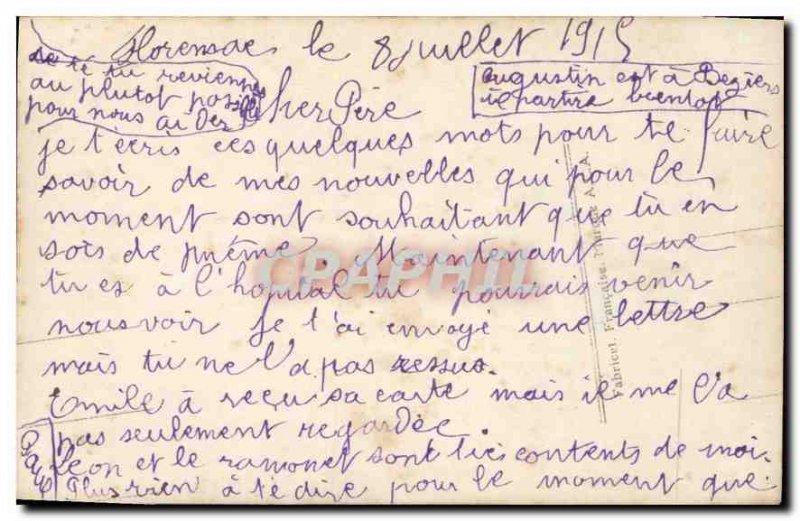 Florensac le 8 Juillet 1915
Cher Père
Augustin est à Beziers
je t'écris ces quelques mots pour te faire
savoir de mes nouvelles qui pour le
moment sont souhaitant que tu en
sois de même. Maintenant que
tu es à l'hopital tu pourrais venir
nous voir je t'ai envoyé une lettre
mais tu ne l'a pas ressus.
Emile à reçu sa carte mais il me l'a
pas seulement regardée.
Leon et le ramonet sont très contents de moi.
Plus rien à te dire pour le moment que
de te tu reviennes
au plutot possible
pour nous aider
Fabricat. Française. A.
CPAPHIL